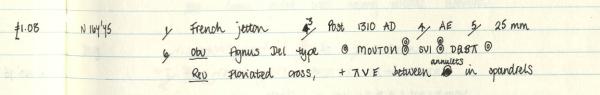 £1.08 N 164'45 1/ French jetton 3/ Post 1310 AD 4/ AE 5/ 25 mm
6/ Obv Agnus Dei type ◎ MOUTON ◎ SVI ◎ DEBΛ ◎
Rev Floriated cross, + ΛVE between annulets in spandrels